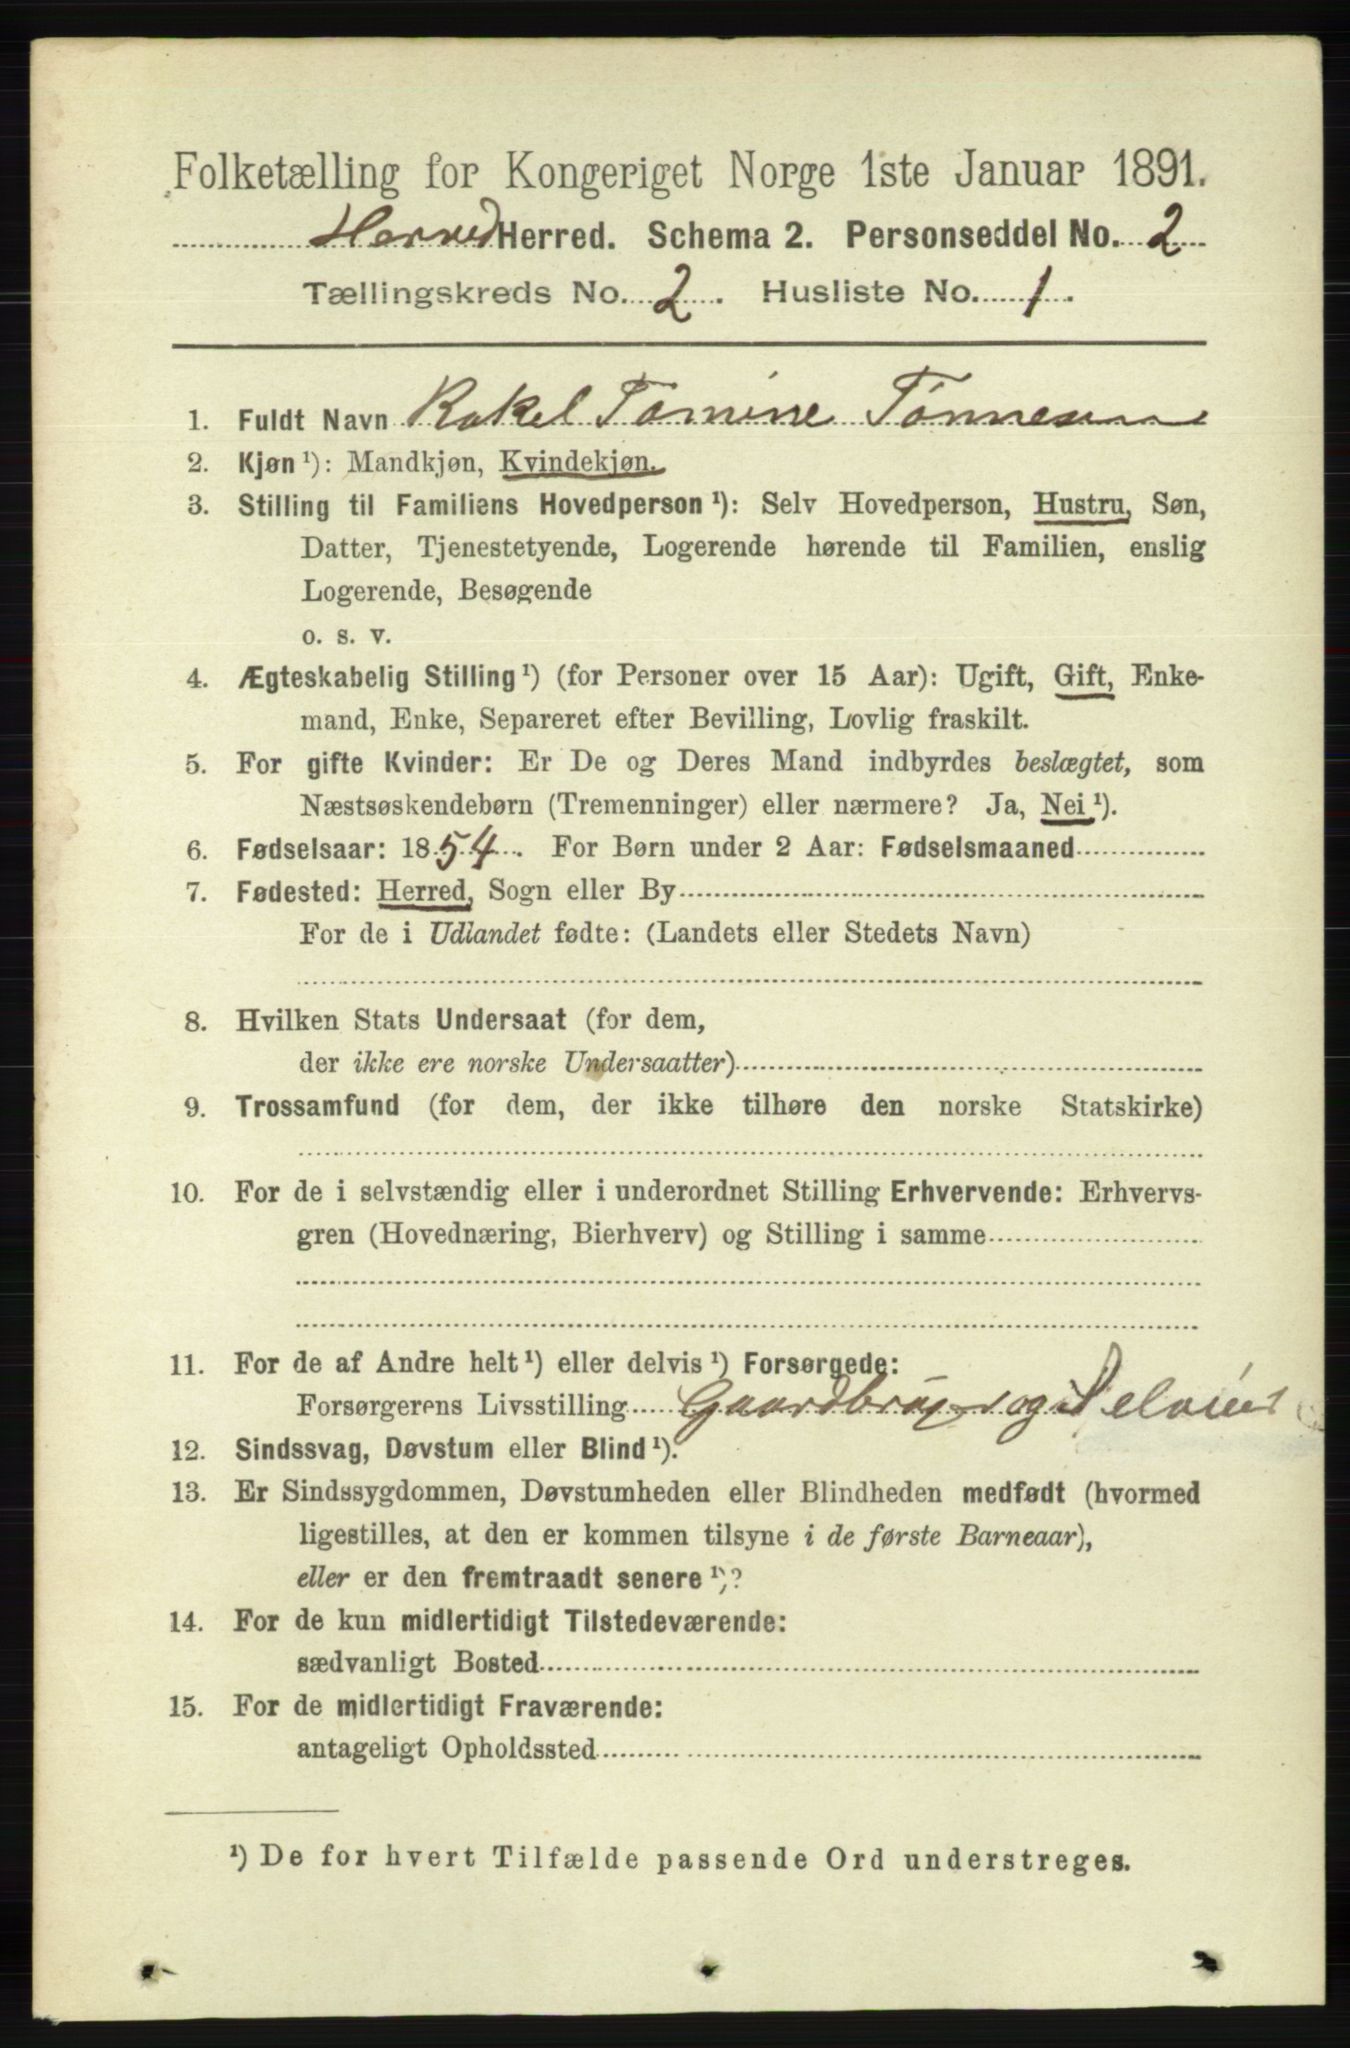 Folketælling for Kongeriget Norge 1ste Januar 1891.
Herred Herred. Schema 2. Personseddel No. 2
Tællingskreds No. 2. Husliste No. 1.
1. Fuldt Navn Rakel Tomine Tønnesen
2. Kjøn ¹): Mandkjøn, Kvindekjøn.
3. Stilling til Familiens Hovedperson ¹): Selv Hovedperson, Hustru, Søn,
Datter, Tjenestetyende, Logerende hørende til Familien, enslig
Logerende, Besøgende
o. s. v.
4. Ægteskabelig Stilling ¹) (for Personer over 15 Aar): Ugift, Gift, Enke-
mand, Enke, Separeret efter Bevilling, Lovlig fraskilt.
5. For gifte Kvinder: Er De og Deres Mand indbyrdes beslægtet, som
Næstsøskendebørn (Tremenninger) eller nærmere? Ja, Nei ¹).
6. Fødselsaar: 1854. For Børn under 2 Aar: Fødselsmaaned
7. Fødested: Herred, Sogn eller By
For de i Udlandet fødte: (Landets eller Stedets Navn)
8. Hvilken Stats Undersaat (for dem,
der ikke ere norske Undersaatter)
9. Trossamfund (for dem, der ikke tilhøre den norske Statskirke)
10. For de i selvstændig eller i underordnet Stilling Erhvervende: Erhvervs-
gren (Hovednæring, Bierhverv) og Stilling i samme
11. For de af Andre helt ¹) eller delvis ¹) Forsørgede:
Forsørgerens Livsstilling Gaardbruger og Selveier
12. Sindssvag, Døvstum eller Blind ¹).
13. Er Sindssygdommen, Døvstumheden eller Blindheden medfødt (hvormed
ligestilles, at den er kommen tilsyne i de første Barneaar),
eller er den fremtraadt senere ¹)?
14. For de kun midlertidigt Tilstedeværende:
sædvanligt Bosted
15. For de midlertidigt Fraværende:
antageligt Opholdssted
¹) De for hvert Tilfælde passende Ord understreges.